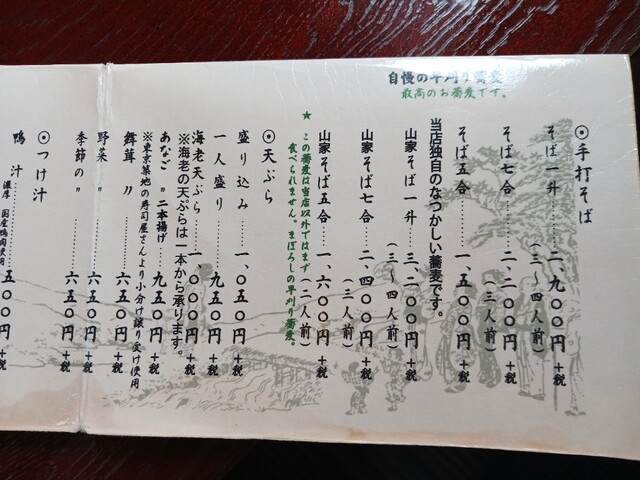 自慢の早刈り蕎麦
最高のお蕎麦です。
◉手打そば
そば一升………二、九〇〇円+税
(三〜四人前)
そば七合………二、二〇〇円+税
(三人前)
そば五合………一、五〇〇円+税
当店独自のなつかしい蕎麦です。
山家そば一升…三、二〇〇円+税
(三〜四人前)
山家そば七合…二、四〇〇円+税
(三人前)
山家そば五合…一、六〇〇円+税
(二人前)
★この蕎麦は当店以外ではまず
食べられません。まぼろしの早刈り蕎麦
◉天ぷら
盛り込み………一、〇五〇円+税
一人盛り………九五〇円+税
海老天ぷら……一、〇〇〇円+税
※海老の天ぷらは一本から承ります。
あなご 〃 二本揚げ…九五〇円+税
※東京築地の寿司屋さんより小分け譲り受け使用
舞茸 〃………六五〇円+税
野菜 〃………六五〇円+税
季節の〃………六五〇円+税
◉つけ汁
鴨汁………五〇〇円+税
濃厚 国産鴨肉使用